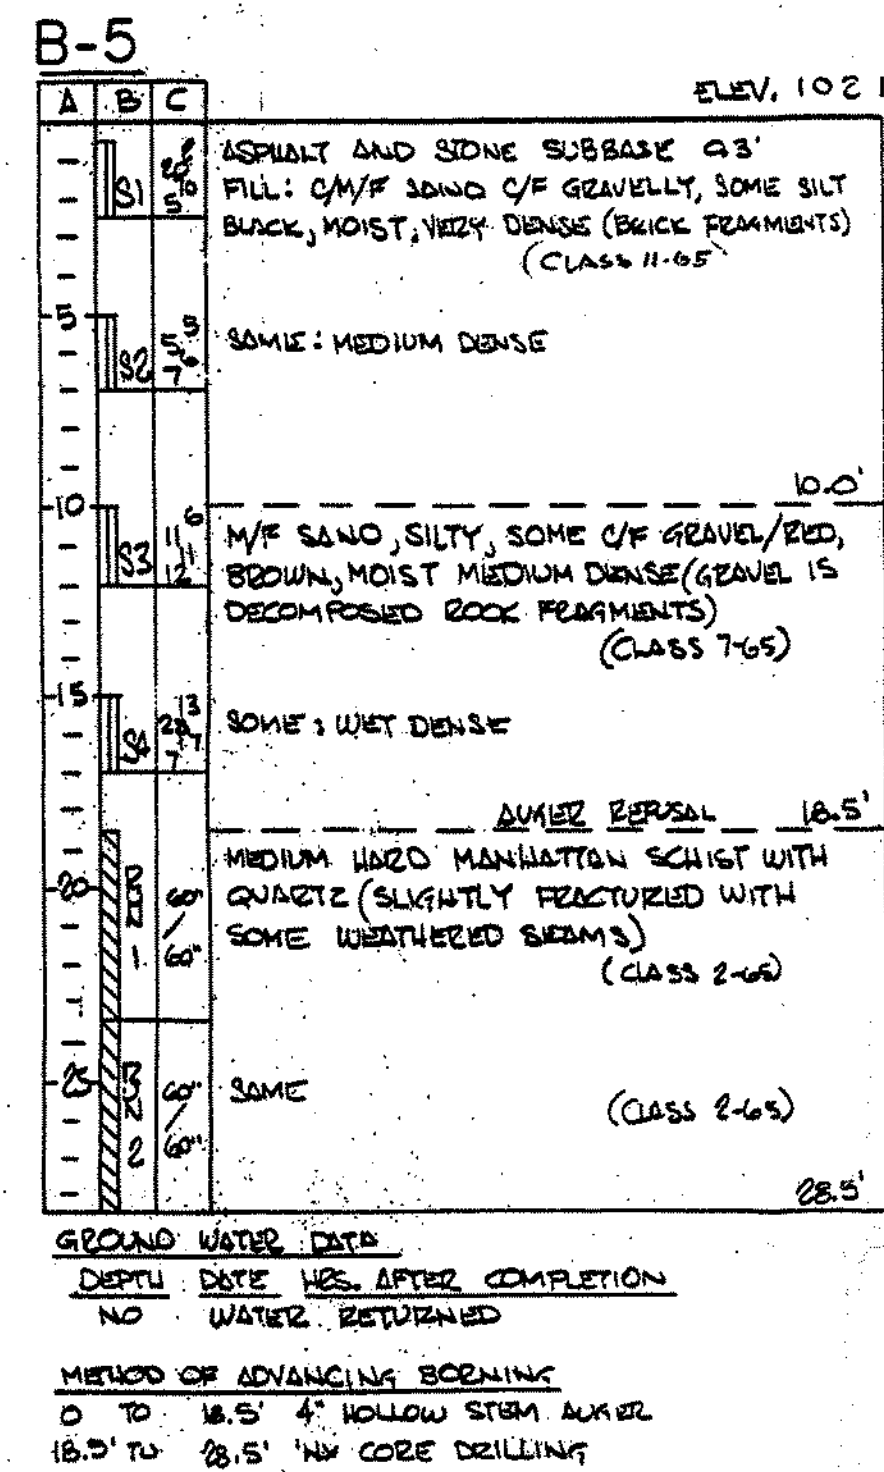 B-5
A B C
ELEV. 102
ASPHALT AND STONE SUBBASE 0.3'
S1
FILL: C/M/F SAND C/F GRAVELLY, SOME SILT
BLACK, MOIST, VERY DENSE (BRICK FRAGMENTS)
(CLASS 11-65
5
S2
5 5
7
SAME: MEDIUM DENSE
10.0'
10
S3
6
11
11
12
M/F SAND, SILTY, SOME C/F GRAVEL/RED,
BROWN, MOIST MEDIUM DENSE (GRAVEL IS
DECOMPOSED ROCK FRAGMENTS)
(CLASS 7-65)
15
S4
13
7
SOME: WET DENSE
AUGER REFUSAL 18.5'
20
RUN 1
60"
/
60"
MEDIUM HARD MANHATTAN SCHIST WITH
QUARTZ (SLIGHTLY FRACTURED WITH
SOME WEATHERED SEAMS)
(CLASS 2-65)
25
RUN 2
60"
/
60"
SAME
(CLASS 2-65)
28.5'
GROUND WATER DATA
DEPTH DATE HRS. AFTER COMPLETION
NO WATER RETURNED
METHOD OF ADVANCING BORNING
0 TO 18.5' 4" HOLLOW STEM AUGER
18.5' TO 28.5' NX CORE DRILLING